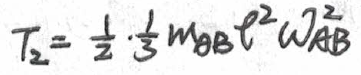 T₂ = 1/2 · 1/3 m_{OB} l² ω²_{AB}